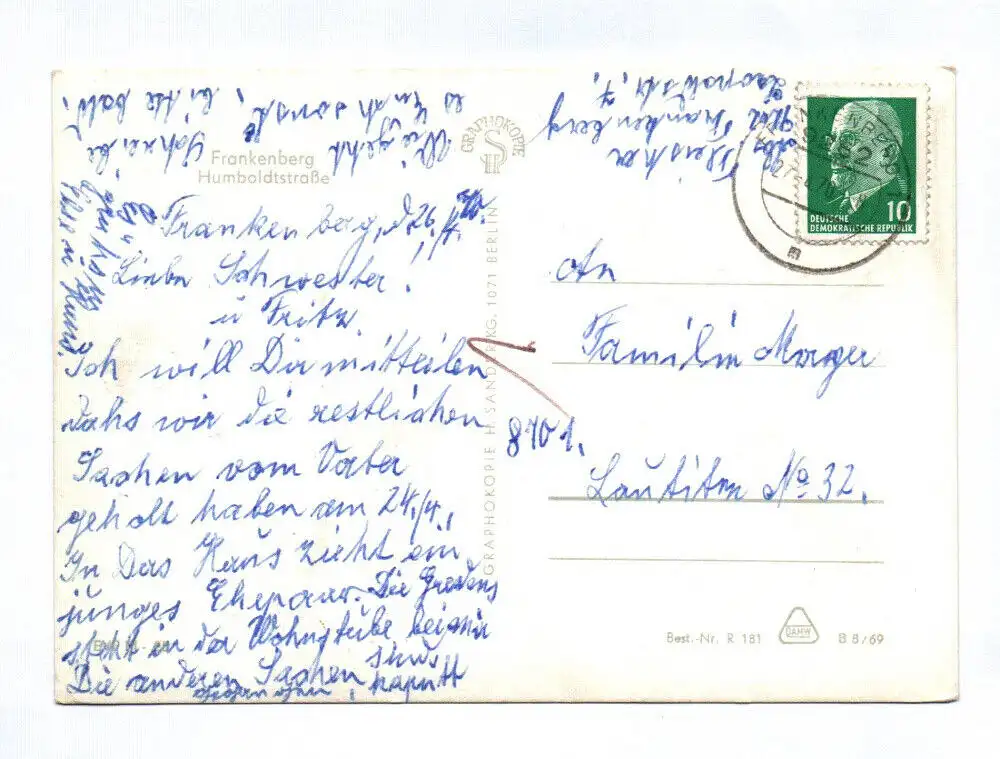 Frankenberg
Humboldtstraße
Frankenberg, d. 26./4. 70.
Liebe Schwester!
u Fritz.
Ich will Dir mitteilen
dahs wir die restlichen
Sachen vom Vater
geholt haben am 24./4.,
In das Haus zieht ein
junges Ehepaar. Die
steht in der Wohnstube bei mir
Die anderen Sachen sind
gegangen, kaputt
Wie geht
es Euch sonst,
Schreibe
bitte bald,
GRAPHOKOPIE
GRAPHOKOPIE H. SANDER KG. 1071 BERLIN
Fleischer
Frankenberg
Leopoldstr. 7,
DEUTSCHE
DEMOKRATISCHE REPUBLIK
10
An
Familie Mager
8701.
Lautitz No 32.
Best.-Nr. R 181
DAHW
B 8/69